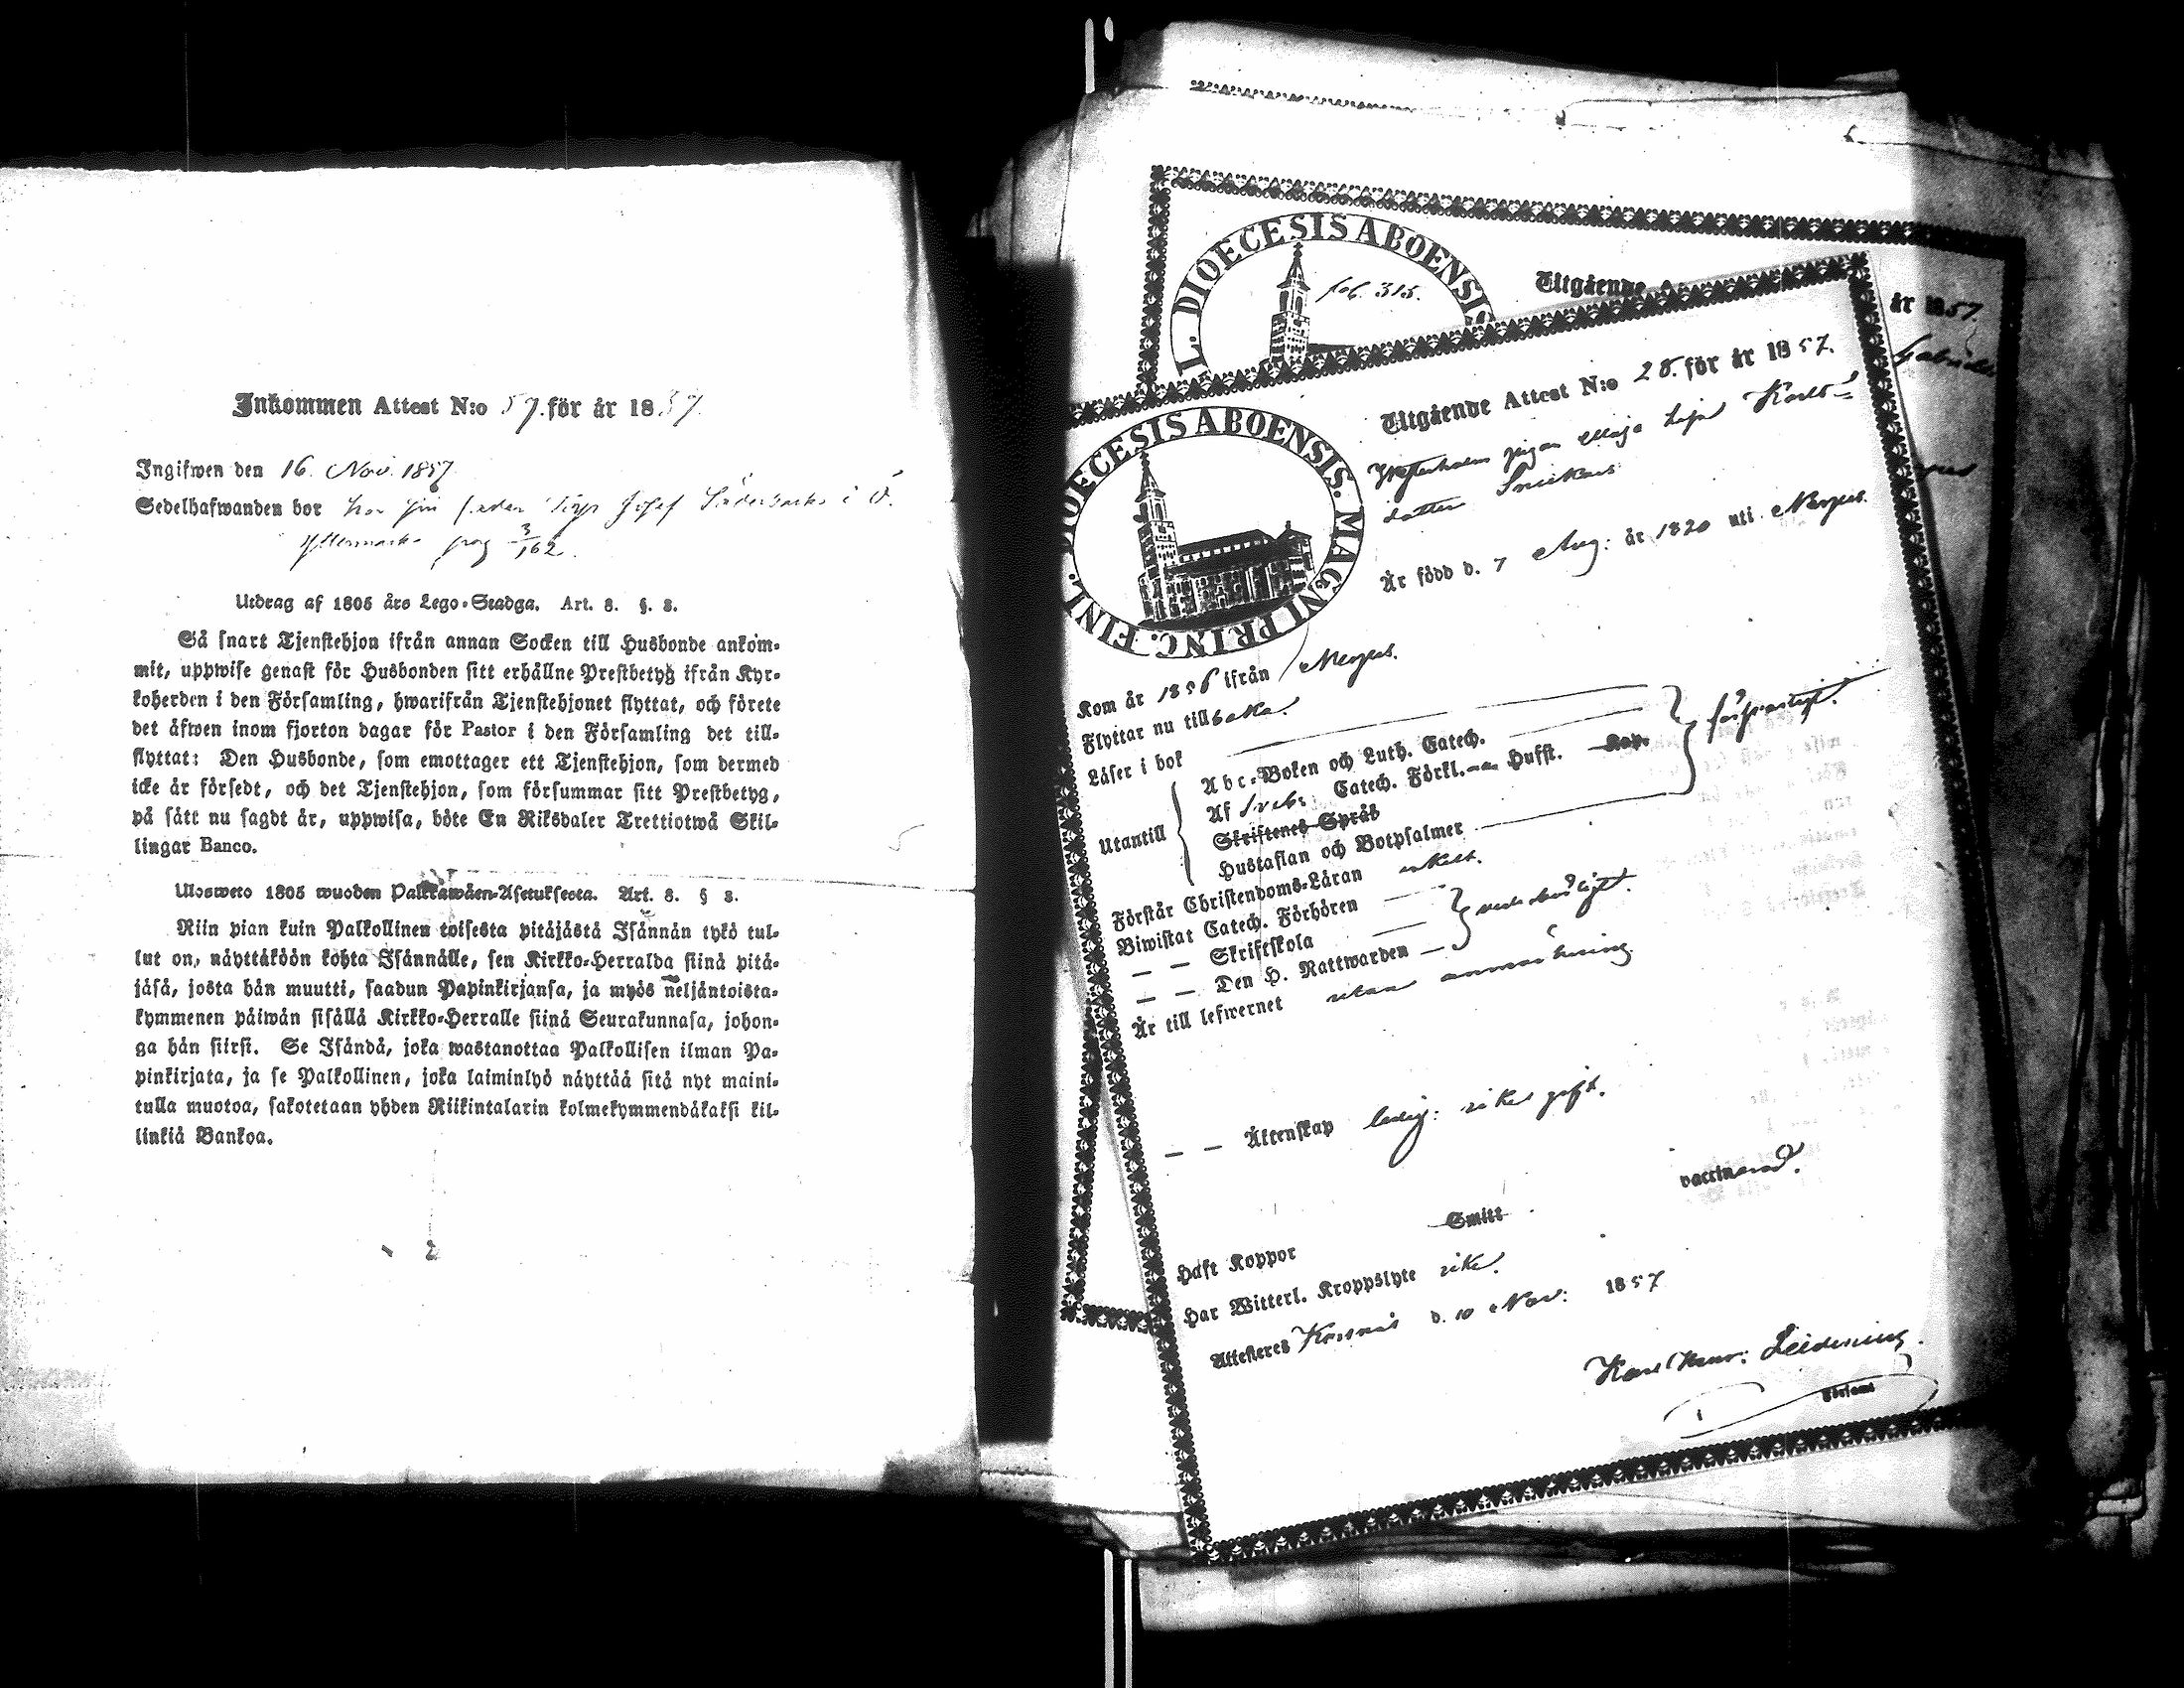 Inkommen Attest N:o 57. för år 1857.
Ingifwen den 16. Nov. 1857
Sedelhafwanden bor hos sin fader Josef i Ö.
Yttermark pag 3/162.
Utdrag af 1805 års Lego-Stadga. Art. 8. §. 8.
Så snart Tjenstehjon ifrån annan Socken till Husbonde ankom-
mit, uppwise genast för Husbonden sitt erhållne Prestbetyg ifrån Kyr-
koherden i den Församling, hwarifrån Tjenstehjonet flyttat, och förete
det äfwen inom fjorton dagar för Pastor i den Församling det till-
flyttat: Den Husbonde, som emottager ett Tjenstehjon, som dermed
icke är försedt, och det Tjenstehjon, som försummar sitt Prestbetyg,
på sätt nu sagdt är, uppwisa, böte En Riksdaler Trettiotwå Skil-
lingar Banco.
Ulosweto 1805 wuoden Palkkawäen-Asetuksesta. Art. 8. § 8.
Niin pian kuin Palkollinen toisesta pitäjästä Isännän tykö tul-
lut on, näyttäköön kohta Isännälle, sen Kirkko-Herralda siinä pitä-
jäsä, josta hän muutti, saadun Papinkirjansa, ja myös neljäntoista-
kymmenen päiwän sisällä Kirkko-Herralle siinä Seurakunnasa, johon-
ga hän siirsi. Se Isändä, joka wastanottaa Palkollisen ilman Pa-
pinkirjata, ja se Palkollinen, joka laiminlyö näyttää sitä nyt maini-
tulla muotoa, sakotetaan yhden Riikintalarin kolmekymmendäkaksi kil-
linkiä Bankoa.
L. DIOECESIS ABOENSIS
fol. 315.
Utgående
år 1857
DIOECESIS ABOENSIS. MAGNI PRINC. FINL.
Utgående Attest N:o 28. för år 1857.
pigan Maja Lisa Karls-
dotter Snickars
Är född d. 7 Aug: år 1820 uti Nerpes.
Kom år 1856 ifrån Nerpes.
Flyttar nu tillbaka.
Läser i bok
Abc-Boken och Luth. Catech.
Utantill
Af Sveb: Catech. Förkl. Husst. Kap.
försvarligt.
Skriftenes Språk
Hustaflan och Botpsalmer
Förstår Christendoms-Läran enkelt.
Biwistat Catech. Förhören
— — Skriftskola
vederbörligt.
— — Den H. Nattwarden —
Är till lefwernet utan anmärkning.
— — Äktenskap ledig: icke gift.
vaccinerad.
Haft Koppor
Smitt
Har Witterl. Kroppslyte icke.
Attesteres Korsnäs d. 10 Nov: 1857
Församl